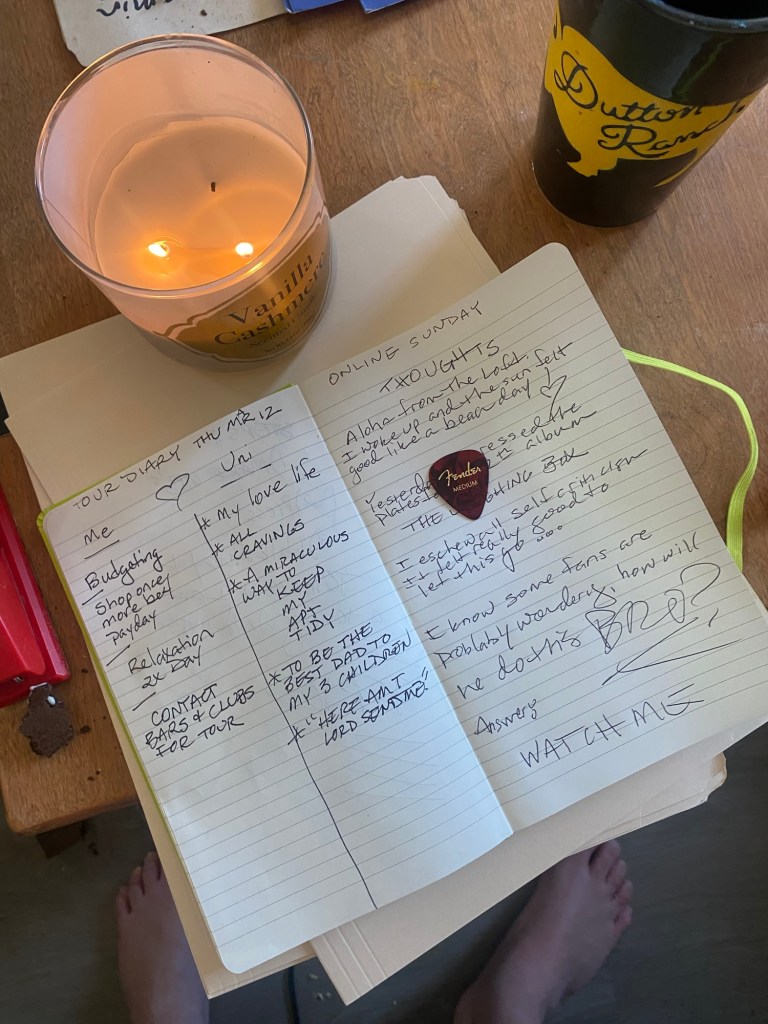 Dutton
Ranch
Vanilla
Cashmere
TOUR DIARY THU MR 12
Me
Budgeting
Shop once
more bef
payday
Relaxation
2x Day
CONTACT
BARS & CLUBS
FOR TOUR
Uni
* My love life
* ALL
CRAVINGS
* A MIRACULOUS
WAY TO
KEEP
MY
APT
TIDY
* TO BE THE
BEST DAD TO
MY 3 CHILDREN
* "HERE AM I
LORD SEND ME"
ONLINE SUNDAY
THOUGHTS
Aloha from the Loft.
I woke up and the sun felt
good like a beach day!
Yesterday pressed the
plates album
THE
I eschew all self criticism
it felt really good to
let this go...
I know some fans are
problably wondery, how will
he do this BRO?
Answer:
WATCH ME
Fender
MEDIUM